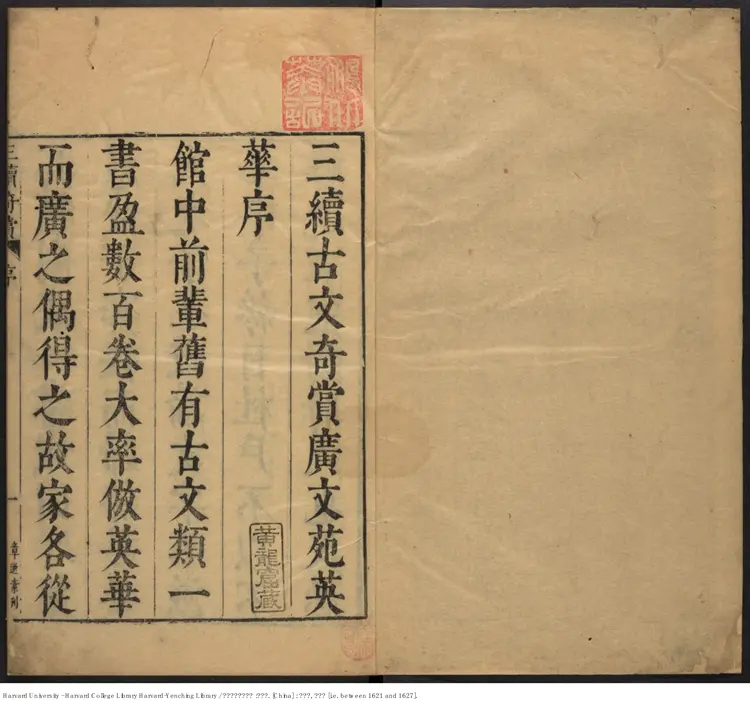 三續古文奇賞廣文苑英
華序
館中前輩舊有古文類一
書盈數百卷大率倣英華
而廣之偶得之故家各從
黃龍窟藏
三續奇賞
序
一
Harvard University - Harvard College Library Harvard-Yenching Library / ???????? :???, [China] : ???, ??? [i.e. between 1621 and 1627].